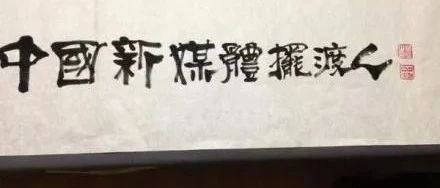 中國新媒體擺渡人